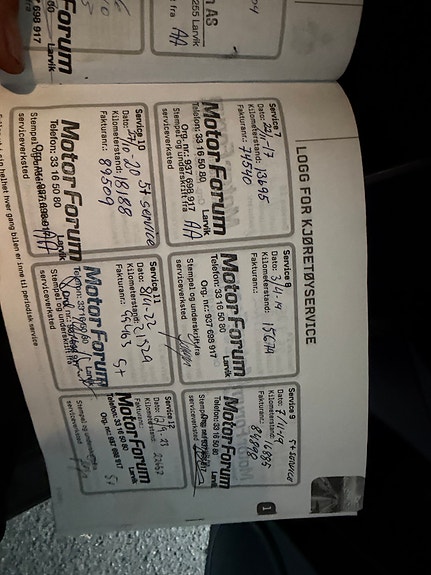 LOGG FOR KJØRETØYSERVICE
Service 7
Dato: 22/1-17
Kilometerstand: 13695
Fakturanr.: 74540
MotorForum
Larvik
Telefon: 33 16 50 80
Org. nr.: 937 698 917
Stempel og underskrift fra
serviceverksted
AA
Service 8
Dato: 3/4-19
Kilometerstand: 15674
MotorForum
Larvik
Telefon: 33 16 50 80
Org. nr.: 937 698 917
Stempel og underskrift fra
serviceverksted
Service 9 St service
Dato: 7/11-19
Kilometerstand: 16895
Fakturanr.: 84898
MotorForum
Larvik
Telefon: 33 16 50 80
serviceverksted
Service 10 St service
Kilometerstand: 18188
Fakturanr.: 89509
MotorForum
Larvik
Telefon: 33 16 50 80
Org. nr.: 937 698 917
Stempel og underskrift fra
serviceverksted
AA
Service 11
Dato: 8/4-22
Kilometerstand: 21524
Fakturanr.: St
MotorForum
Larvik
Telefon: 33 16 50 80
Stempel og underskrift fra
serviceverksted
Service 12
Kilometerstand:
Fakturanr.: St
MotorForum
Larvik
Telefon: 33 16 50 80
Org. nr.: 937 698 917
Stempel og underskrift fra
serviceverksted
helhet hver gang bilen er inne til periodisk service
1
Forum
Larvik
AS
3255 Larvik
fra
AA